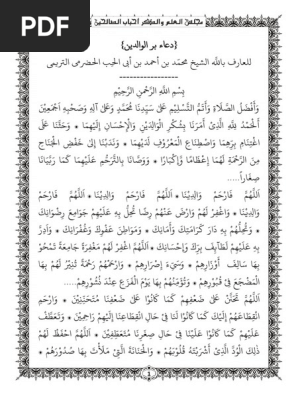 PDF
مجلس العلم والذكر احباب الصالحين
{دعاء بر الوالدين}
للعارف بالله الشيخ محمد بن أحمد بن أبي الحب الحضرمي التريمي
-----------------
بِسْمِ اللهِ الرَّحْمنِ الرَّحِيْمِ
وَأَفْضَلُ الصَّلَاةِ وَأَتَمُّ التَّسْلِيْمِ عَلَى سَيِّدِنَا مُحَمَّدٍ وَعَلَى آلِهِ وَصَحْبِهِ أَجْمَعِيْنَ
اَلْحَمْدُ لِلَّهِ الَّذِي أَمَرَنَا بِشُكْرِ الْوَالِدَيْنِ وَالْإِحْسَانِ إِلَيْهِمَا * وَحَثَّنَا عَلَى
اغْتِنَامِ بِرِّهِمَا وَاصْطِنَاعِ الْمَعْرُوْفِ لَدَيْهِمَا * وَنَدَبَنَا إِلَى خَفْضِ الْجَنَاحِ
مِنَ الرَّحْمَةِ لَهُمَا إِعْظَامًا وَإِكْبَارًا * وَوَصَّانَا بِالتَّرَحُّمِ عَلَيْهِمَا كَمَا رَبَّيَانَا
صِغَارًا....
اَللَّهُمَّ فَارْحَمْ وَالِدِيْنَا * اَللَّهُمَّ فَارْحَمْ وَالِدِيْنَا * اَللَّهُمَّ فَارْحَمْ
وَالِدِيْنَا * وَاغْفِرْ لَهُمْ وَارْضَ عَنْهُمْ رِضًا تُحِلُّ بِهِ عَلَيْهِمْ جَوَامِعَ رِضْوَانِكَ
* وَتُحِلُّهُمْ بِهِ دَارَ كَرَامَتِكَ وَأَمَانِكَ * وَمَوَاطِنَ عَفْوِكَ وَغُفْرَانِكَ * وَأَدِرَّ
بِهِ عَلَيْهِمْ لَطَائِفَ بِرِّكَ وَإِحْسَانِكَ * اَللَّهُمَّ اغْفِرْ لَهُمْ مَغْفِرَةً جَامِعَةً تَمْحُوْ
بِهَا سَالِفَ أَوْزَارِهِمْ * وَسَيِّءَ إِصْرَارِهِمْ * وَارْحَمْهُمْ رَحْمَةً تُنِيْرُ لَهُمْ بِهَا
الْمَضْجَعَ فِي قُبُوْرِهِمْ * وَتُؤَمِّنُهُمْ بِهَا يَوْمَ الْفَزَعِ عِنْدَ نُشُوْرِهِمْ....
اَللَّهُمَّ تَحَنَّنْ عَلَى ضَعْفِهِمْ كَمَا كَانُوْا عَلَى ضَعْفِنَا مُتَحَنِّنِيْنَ * وَارْحَمِ
انْقِطَاعَهُمْ إِلَيْكَ كَمَا كَانُوْا لَنَا فِي حَالِ انْقِطَاعِنَا إِلَيْهِمْ رَاحِمِيْنَ * وَتَعَطَّفْ
عَلَيْهِمْ كَمَا كَانُوْا عَلَيْنَا فِي حَالِ صِغَرِنَا مُتَعَطِّفِيْنَ * اَللَّهُمَّ احْفَظْ لَهُمْ
ذلِكَ الْوُدَّ الَّذِي أَشْرَبْتَهُ قُلُوْبَهُمْ * وَالْحَنَانَةَ الَّتِي مَلَأْتَ بِهَا صُدُوْرَهُمْ *